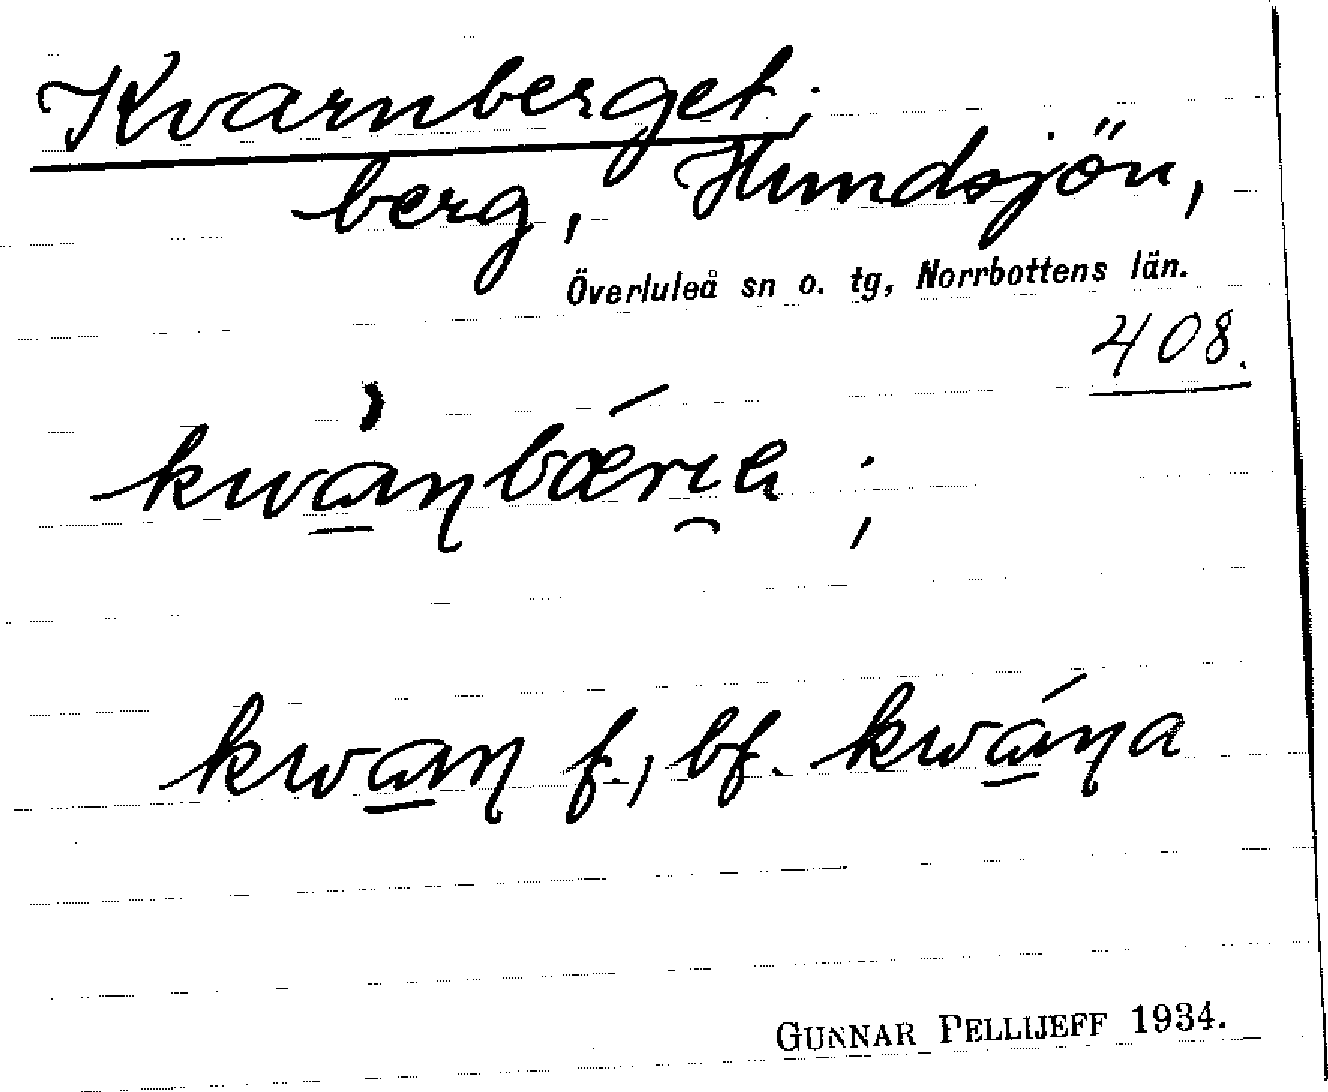 Kvarnberget;
berg, Hundsjön,
Överluleå sn o. tg, Norrbottens län.
408.
kwà̲ŋbǽrɩ̯a ;
kwa̲ŋ f., bf. kwá̲ŋa
GUNNAR PELLIJEFF 1934.